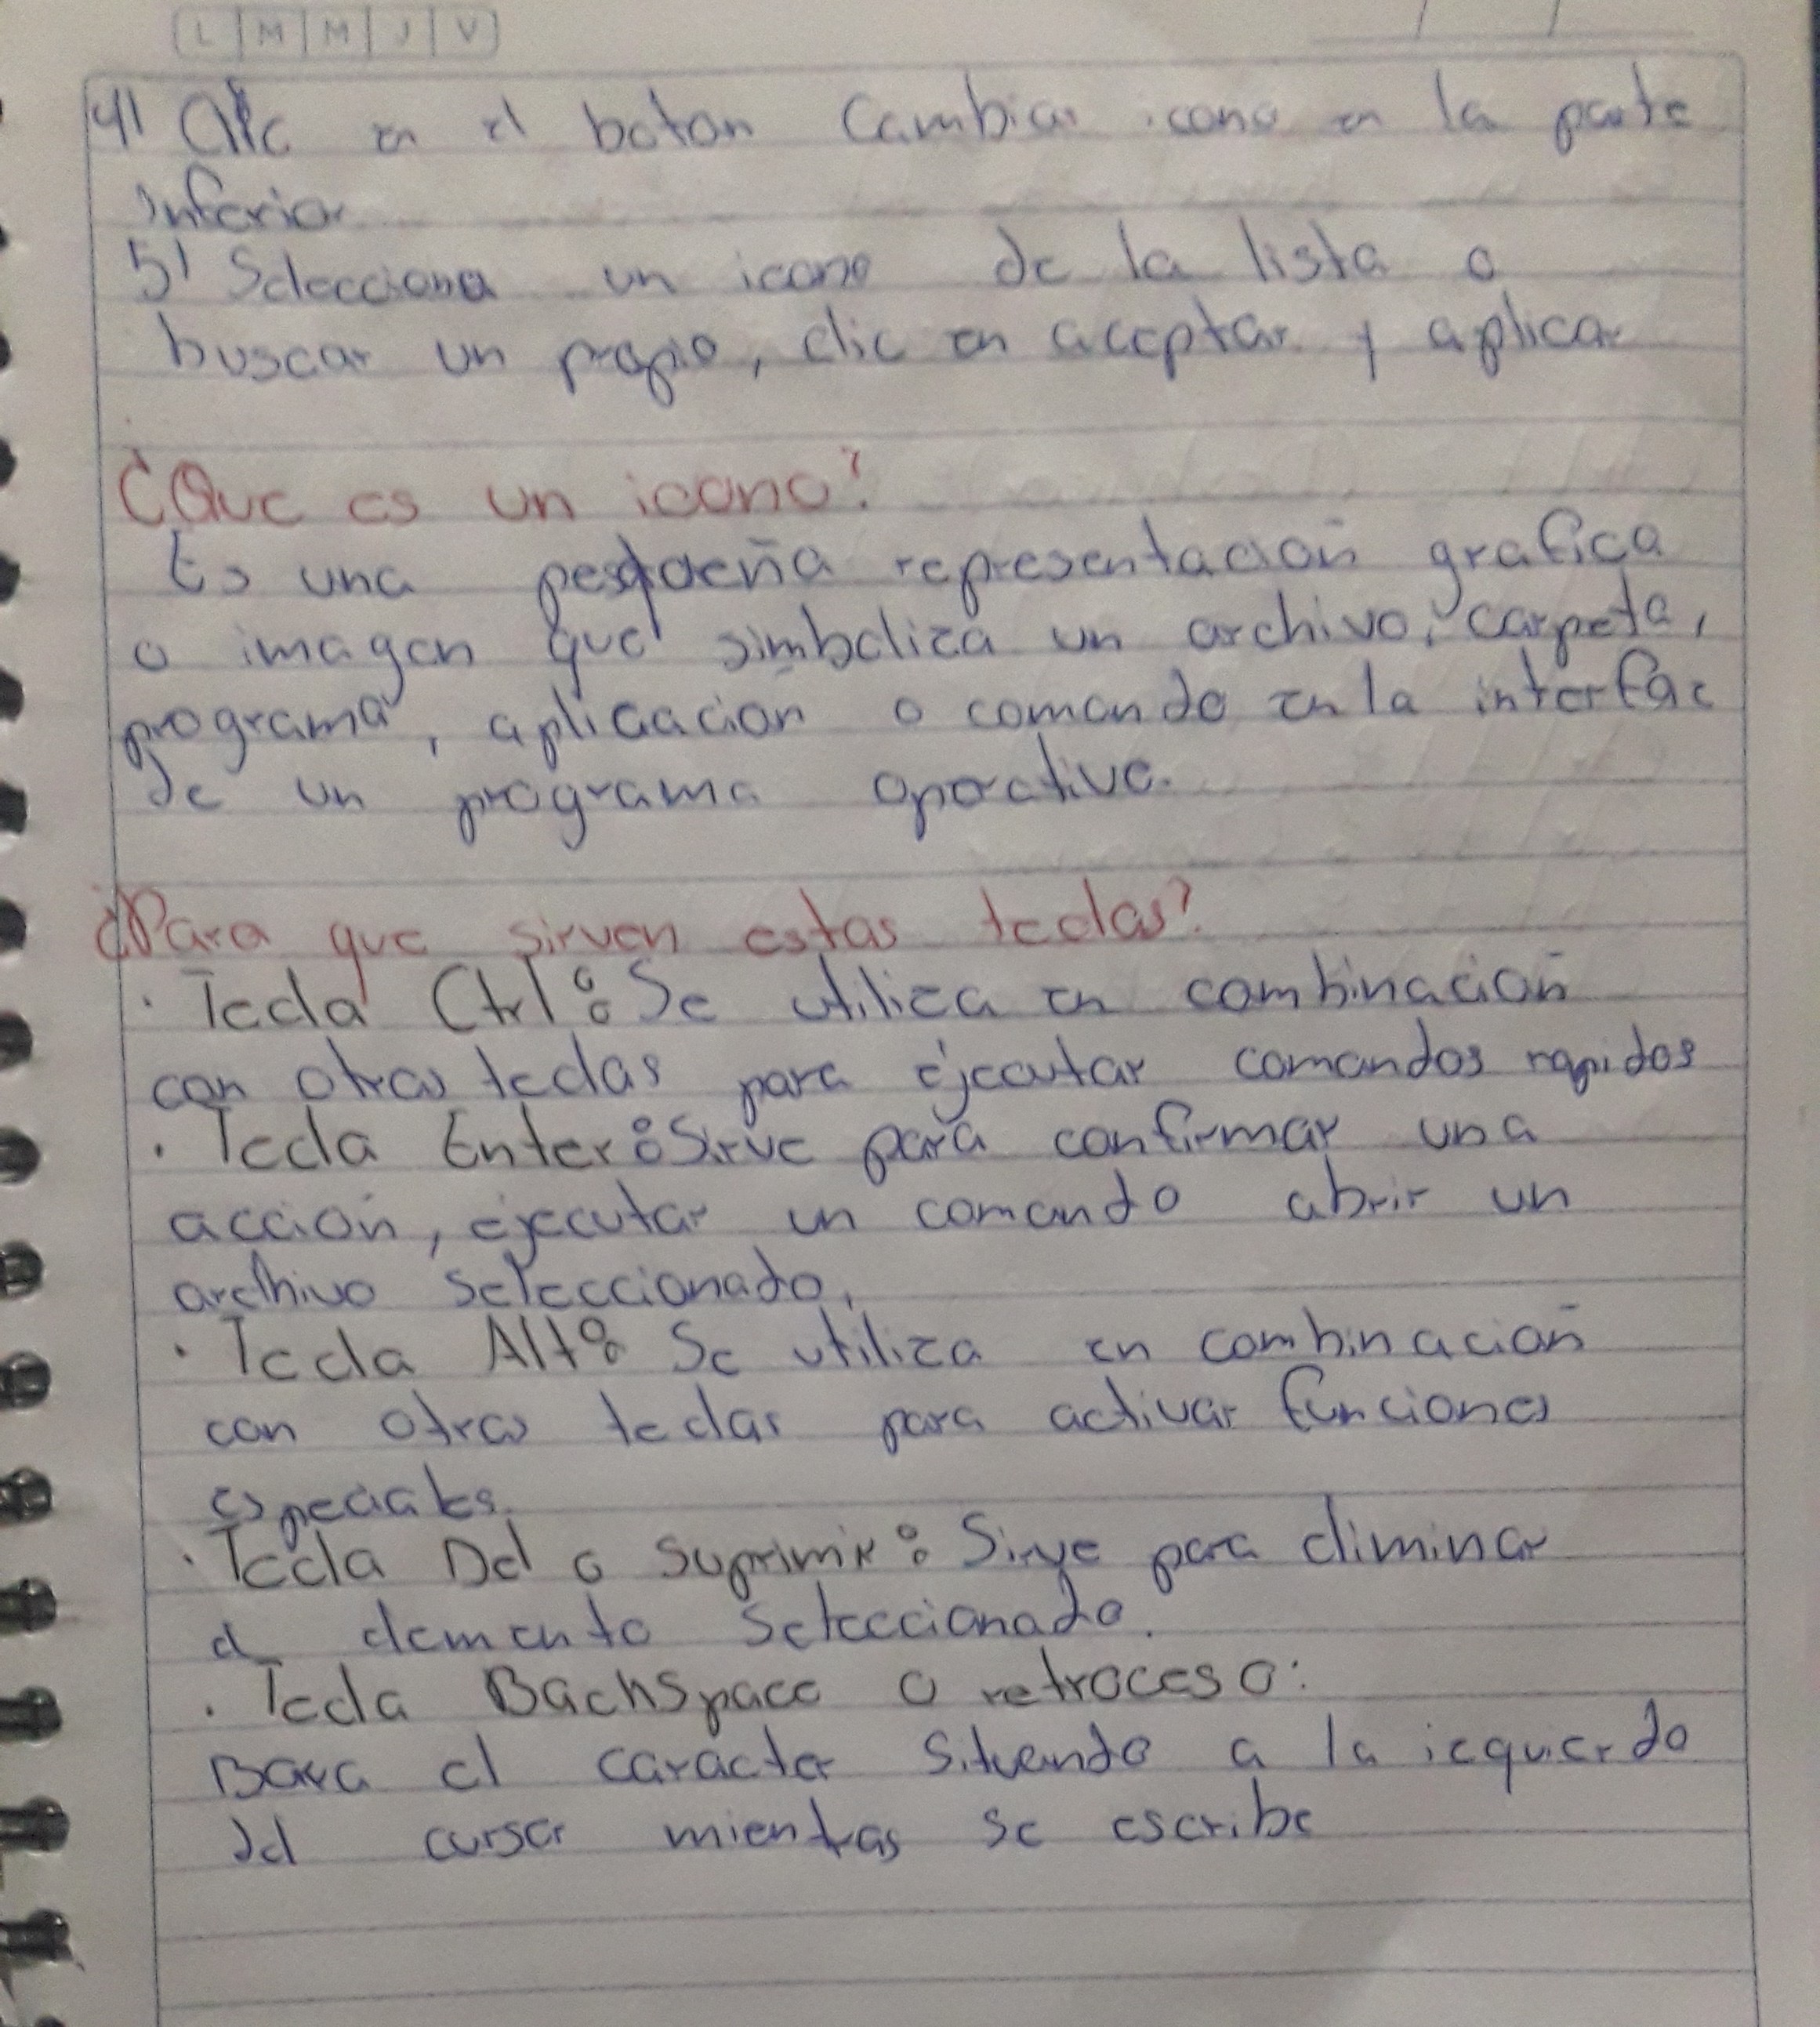 L M M J V
4) Clic en el boton Cambiar icono en la parte
inferior
5) Selecciona un icono de la lista o
buscar un propio, clic en aceptar y aplicar
¿Que es un icono?
Es una pesqueña representación grafica
o imagen que simboliza un archivo, carpeta,
programa, aplicacion o comando en la interfac
de un programa operativo.
¿Para que sirven estas teclas?
· Tecla Ctrl: Se utiliza en combinación
con otras teclas para ejecutar comandos rapidos
· Tecla Enter: Sirve para confirmar una
acción, ejecutar un comando abrir un
archivo seleccionado,
· Tecla Alt: Se utiliza en combinación
con otras teclas para activar funciones
especiales.
· Tecla Del o Suprimir: Sirve para eliminar
el elemento seleccionado.
· Tecla Bachspace o retroceso:
Borra el caracter Situando a la izquierdo
del cursor mientras se escribe